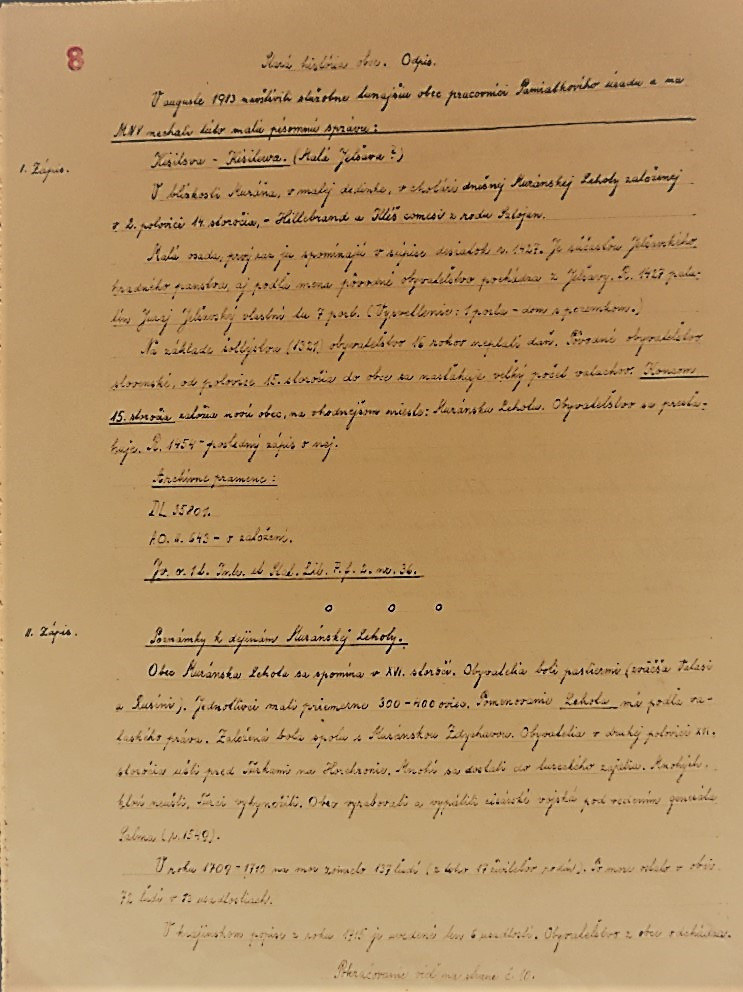 8
Stará história obce. Odpis.
V auguste 1973 navštívili služobne tunajšiu obec pracovníci Pamiatkového úradu a na
MNV nechali túto malú písomnú správu:
I. Zápis.
Kišilsva - Kišilewa. (Malá Jelšava?)
V blízkosti Muráňa, v malej dedinke, v chotári dnešnej Muránskej Lehoty založenej
v 2. polovici 14. storočia, - Hillebrand a Illéš comesi z rodu
Malá osada, prvý raz ju spomínajú v súpise desiatok r. 1427. Je súčasťou Jelšavského
hradného panstva, aj podľa mena pôvodné obyvateľstvo pochádza z Jelšavy. R. 1427 pala-
tín Juraj Jelšavský vlastní tu 7 port. (Vysvetlenie: 1 porta - dom s pozemkom.)
Na základe šoltýstva (1321) obyvateľstvo 16 rokov neplatí daň. Pôvodné obyvateľstvo
slovenské, od polovice 15. storočia do obce sa nasťahuje veľký počet valachov. Koncom
15. storočia založia novú obec, na vhodnejšom mieste: Muránsku Lehotu. Obyvateľstvo sa presťa-
huje. R. 1454 - posledný zápis o nej.
Archívne pramene:
DL 35801.
AO. č. 643 - o založení.
II. Zápis.
Poznámky k dejinám Muránskej Lehoty.
Obec Muránska Lehota sa spomína v XVI. storočí. Obyvatelia boli pastiermi (zväčša Valasi
a Rusíni). Jednotlivci mali priemerne 300-400 oviec. Pomenovanie Lehota má podľa va-
laského práva. Založená bola spolu s Muránskou Zdychavou. Obyvatelia v druhej polovici XVI.
storočia ušli pred Turkami na Horehronie. Mnohí sa dostali do tureckého zajatia. Mnohých,
ktorí neušli, Turci vykynožili. Obec vyrabovali a vypálili cisárske vojská pod vedením generála
Salma (r. 1549).
V roku 1709-1710 na mor zomrelo 137 ľudí (z toho 17 rodín). Po more ostalo v obci
72 ľudí v usadlostiach.
V krajinskom popise z roku 1715 je uvedené len 6 usadlostí. Obyvateľstvo z obce odchádza.
Pokračovanie viď na strane č. 10.